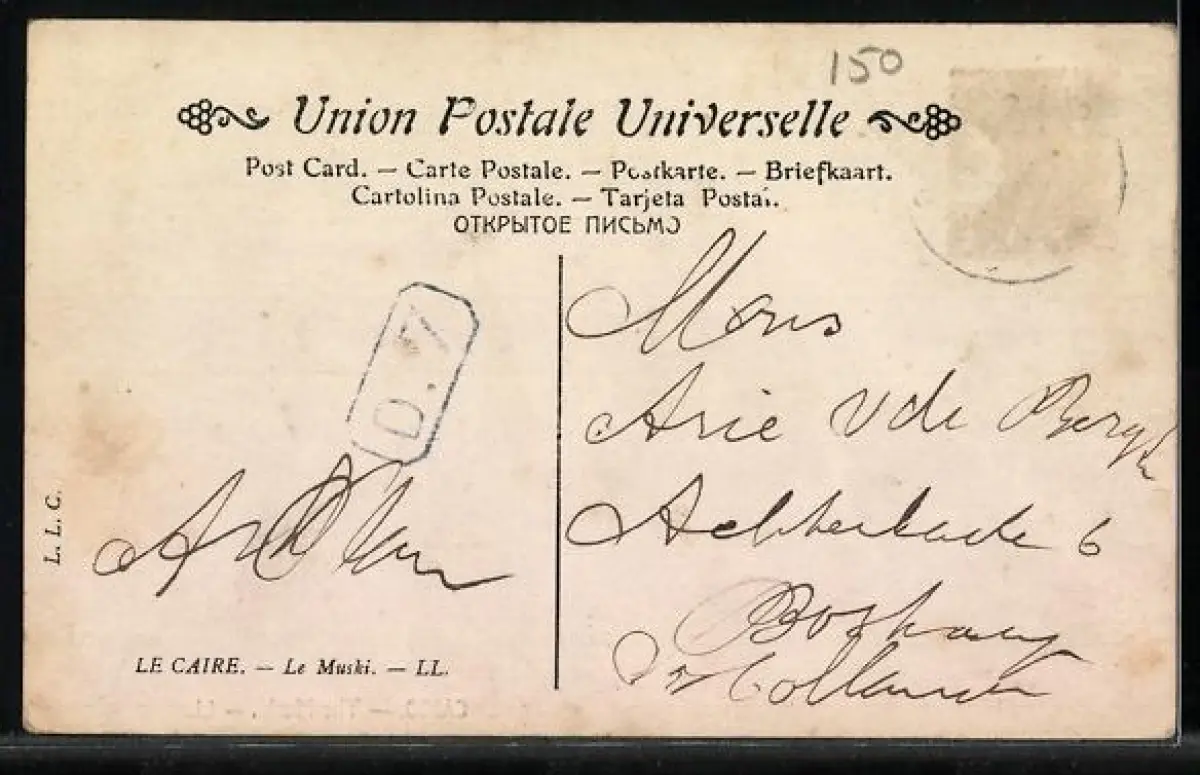 150
Union Postale Universelle
Post Card. — Carte Postale. — Postkarte. — Briefkaart.
Cartolina Postale. — Tarjeta Postal.
ОТКРЫТОЕ ПИСЬМО
D. 7
Mons
Arie vde Bergh
Achterkade 6
Boskoop
Holland
L. L. C.
LE CAIRE. — Le Muski. — LL.